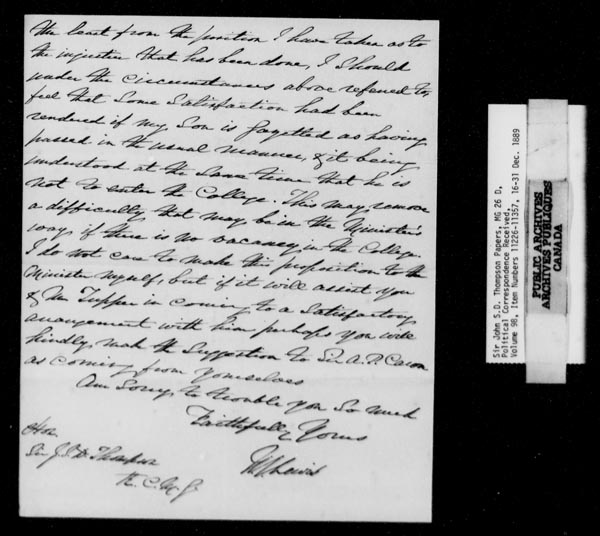 the least from the position I have taken as to
the injustice that has been done, I should
under the circumstances above refered to,
feel that some satisfaction had been
rendered if my Son is gazetted as having
passed in the usual manner, & it being
understood at the same time that he is
not to enter the College. This may remove
a difficulty that may be in the Minister's
way, if there is no vacancy in the College.
I do not care to make this proposition to the
Minister myself, but if it will assist you
& Mr Tupper in coming to a Satisfactory
arrangement with him perhaps you will
kindly make the Suggestion to Sir A.P. Caron
as coming from yourselves
Am Sorry to trouble you so much
Faithfully Yours
Lewis
Hon
Sir J.S.D. Thompson
K.C.M.G
Sir John S.D. Thompson Papers, MG 26 D,
Political Correspondence Received,
Volume 98, Item Numbers 11226-11357, 16-31 Dec. 1889
PUBLIC ARCHIVES
ARCHIVES PUBLIQUES
CANADA